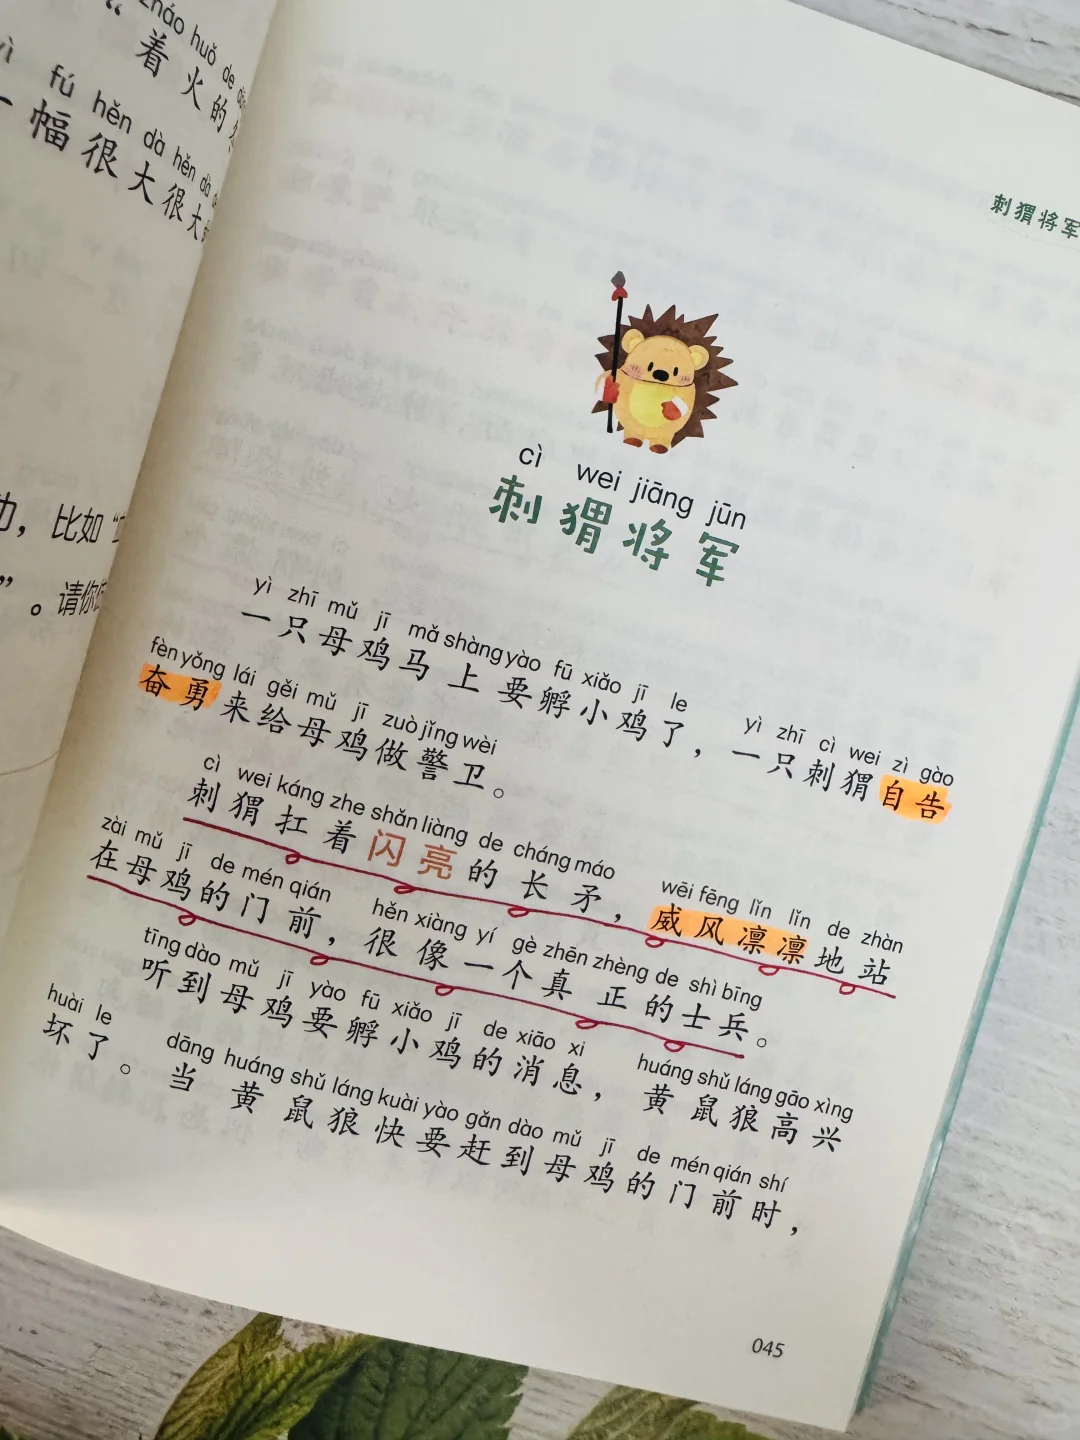 zháo huǒ de
“着火的
yì fú hěn dà hěn dà
一幅很大很大
，比如“
”。请你
刺猬将军
cì wei jiāng jūn
刺猬将军
yì zhī mǔ jī mǎ shàng yào fū xiǎo jī le yì zhī cì wei zì gào
一只母鸡马上要孵小鸡了，一只刺猬自告
fèn yǒng lái gěi mǔ jī zuò jǐng wèi
奋勇来给母鸡做警卫。
cì wei káng zhe shǎn liàng de cháng máo wēi fēng lǐn lǐn de zhàn
刺猬扛着闪亮的长矛，威风凛凛地站
zài mǔ jī de mén qián hěn xiàng yí gè zhēn zhèng de shì bīng
在母鸡的门前，很像一个真正的士兵。
tīng dào mǔ jī yào fū xiǎo jī de xiāo xi huáng shǔ láng gāo xìng
听到母鸡要孵小鸡的消息，黄鼠狼高兴
huài le dāng huáng shǔ láng kuài yào gǎn dào mǔ jī de mén qián shí
坏了。当黄鼠狼快要赶到母鸡的门前时，
045